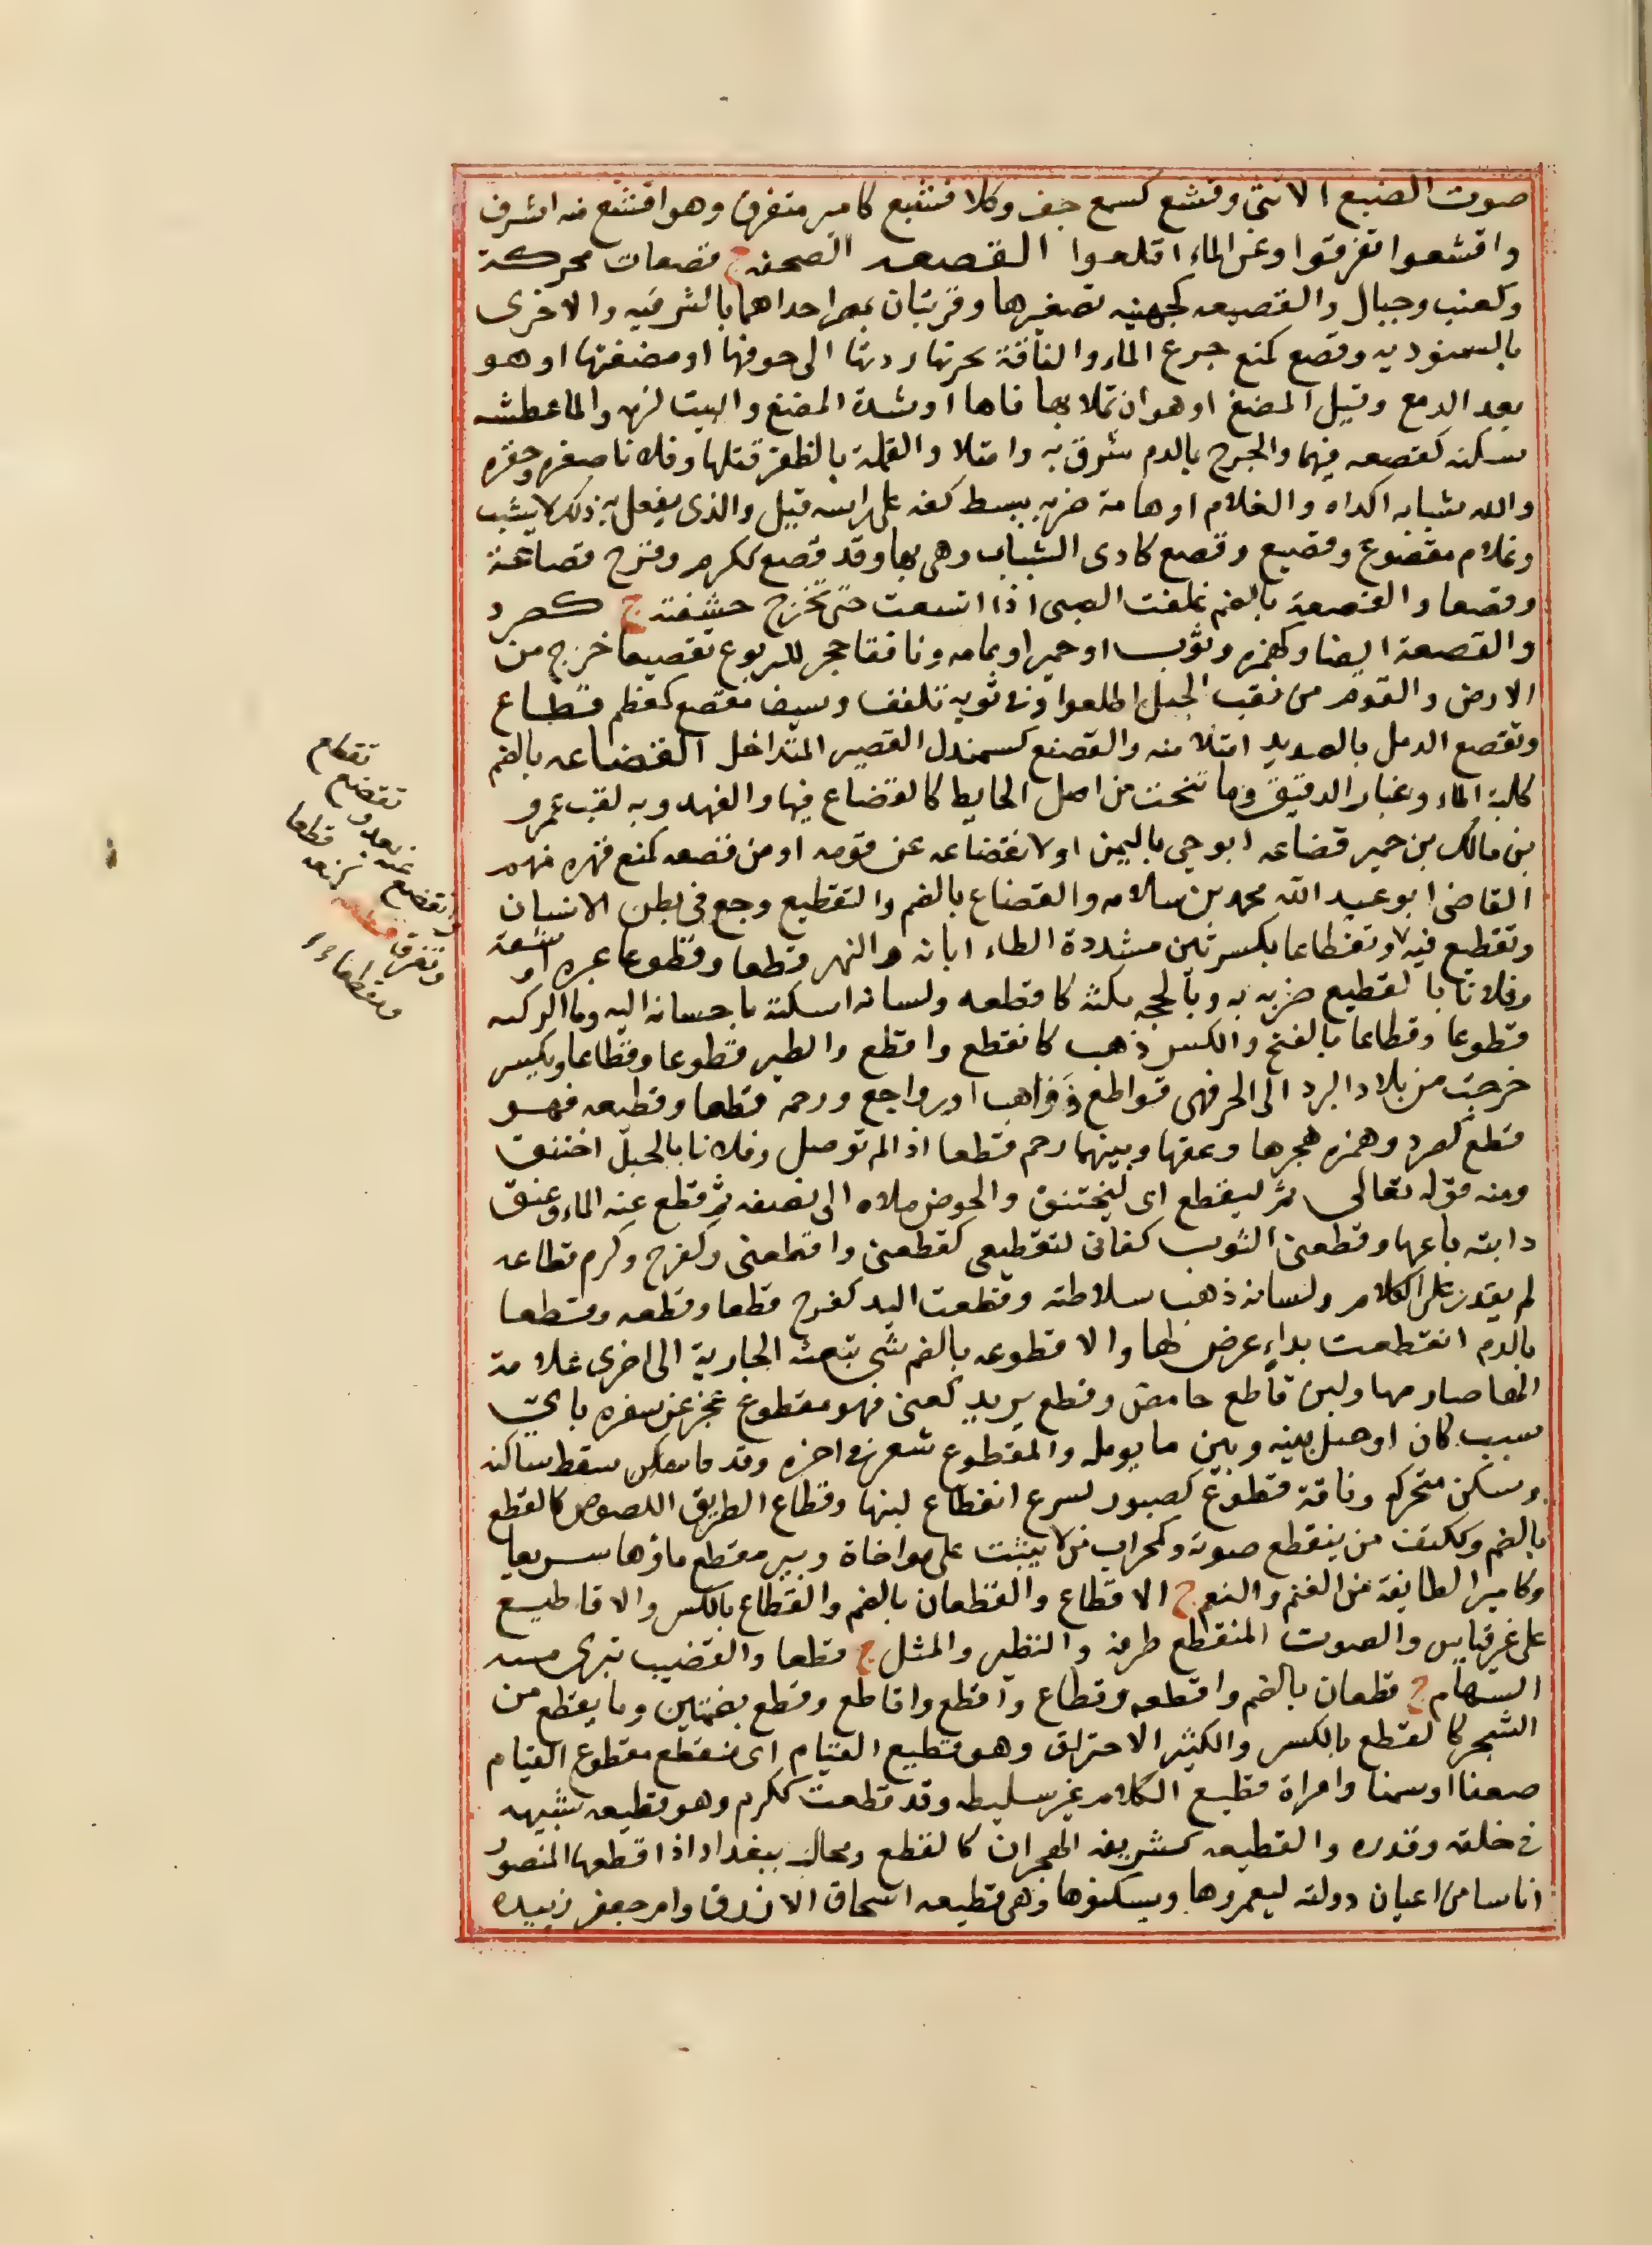 صوت الضبع الانثى وقشع كسمع جف وكلا قشيع كامير متفرق وهو اقشع منه اشرف
واقشعوا تفرقوا وعن الماء اقلعوا القصعه الصحفه ج قصعات محركة
وكعنب وجبال والقصيعه كجهينه تصغيرها وقريتان بمصر احداهما بالشرقيه والاخرى
بالسمنوديه وقصع كمنع جرع الماء والناقة بجرتها ردتها الى جوفها او مضغتها او هو
بعد الدسع وقبل المضغ او هو ان تملا بها فاها او شدة المضغ والبيت لزمه والماء عطشه
سكنه كقصعه فيهما والجرح بالدم شرق به وامتلا والقملة بالظفر قتلها وفلانا صغره وحقره
والله شبابه اكداه والغلام او هامته ضربه ببسط كفه على راسه قيل والذي يفعل به ذلك لا يشب
وغلام مقصوع وقصيع وقصع كادي الشباب وهي بها وقد قصع ككرم وفرح قصاعة
وقصعا والقصعة بالضم غلفة الصبي اذا اتسعت حتى تخرج حشفته ج كصرد
والقصعة ايضا وكهمزه وثوب او حميرا وبمامه ونافقا حجر لليربوع تقصيعا خرج من
الارض والقوم من نقب الجبل اطلعوا وفي ثوبه تلفف وسيف مقصع كمعظم قطاع
وتقصع الدمل بالصديد امتلا منه والقصنع كسمندل القصير المتداخل القضاعه بالضم
كلبة الماء وغبار الدقيق وما تنحت من اصل الحايط كالقضاع فيها والفهد وبه لقب عمرو
بن مالك بن حمير قضاعه ابو حي باليمن او لانقضاعه عن قومه او من قضعه كمنع قهره منهم
القاضي ابو عبد الله محمد بن سلامه والقضاع بالضم والتقطيع وجع في بطن الانسان
وتقطيع فيه وتقطاعا بكسرتين مشددة الطاء ابانه والنهر قطعا وقطوعا عبره او شقه
وفلانا بالقطيع ضربه به وبالحجه بكته كاقطعه ولسانه اسكته باحسانه اليه وما الركيه
قطوعا وقطاعا بالفتح والكسر ذهب كانقطع واقطع والطير قطوعا وقطاعا ويكسر
خرجت من بلاد البرد الى الحر فهي قواطع ذواهب او رواجع ورحمه قطعا وقطيعه فهو
قطع كصرد وهمزه هجرها وعقها وبينهما رحم قطعا اذا لم توصل وفلانا بالحبل اختنق
ومنه قوله تعالى ثم ليقطع اي ليختنق والحوض ملاه الى نصفه ثم قطع عنه الماء وعنق
دابته باعها وقطعني الثوب كفاني لتقطيعي كقطعني واقطعني وكفرح وكرم قطاعه
لم يقدر على الكلام ولسانه ذهبت سلاطته وقطعت اليد كفرح قطعا وقطعه وقطعا
بالدم انقطعت بداء عرض لها والاقطوعه بالضم شي تبعثه الجارية الى اخرى علامة
انها صارمها ولبن قاطع حامض وقطع بزيد كعني فهو مقطوع عجز عن سفره باي
سبب كان او حيل بينه وبين ما يومله والمقطوع شعر في اخره وتد فاسقط ساكنه
وسكن متحركه وناقة قطوع كصبور يسرع انقطاع لبنها وقطاع الطريق اللصوص كالقطع
بالضم وككتف من ينقطع صوته وكمحراب من لا يثبت على مواخاة وبير مقطع ماؤها سريعا
وكامير الطايفة من الغنم والنعم ج الاقطاع والقطعان بالضم والقطاع بالكسر والاقاطيع
على غير قياس والصوت المنقطع طرفه والنظير والمثل ج قطعا والقضيب تبرى منه
السهام ج قطعان بالضم واقطعه وقطاع واقطع واقاطع وقطع بضمتين وما يقطع من
الشجر كالقطع بالكسر والكثير الاحتراق وهو قطيع القيام اي منقطع مقطوع القيام
ضعفا او سمنا وامراة قطيع الكلام غير سليطه وقد قطعت ككرم وهو قطيعه شبيهه
في خلقه وقدره والقطيعه كشريفه الهجران كالقطع ومحال ببغداد اذ اقطعها المنصور
اناسا من اعيان دولته ليعمروها ويسكنوها وهي قطيعه اسحاق الازرق وام جعفر زبيده
تقطع
تقضع
عنه بعد و
وانقضع
وتفرق قطعه كمنعه قطعا
ومقطعا